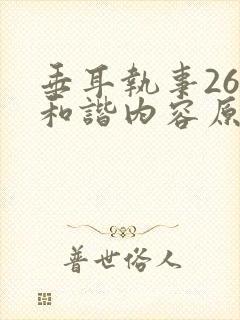 垂耳執事26
和諧內容原
普世俗人